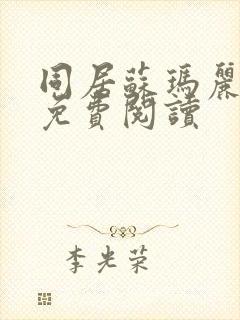 同居蘇瑪麗
免費閱讀
李光荣